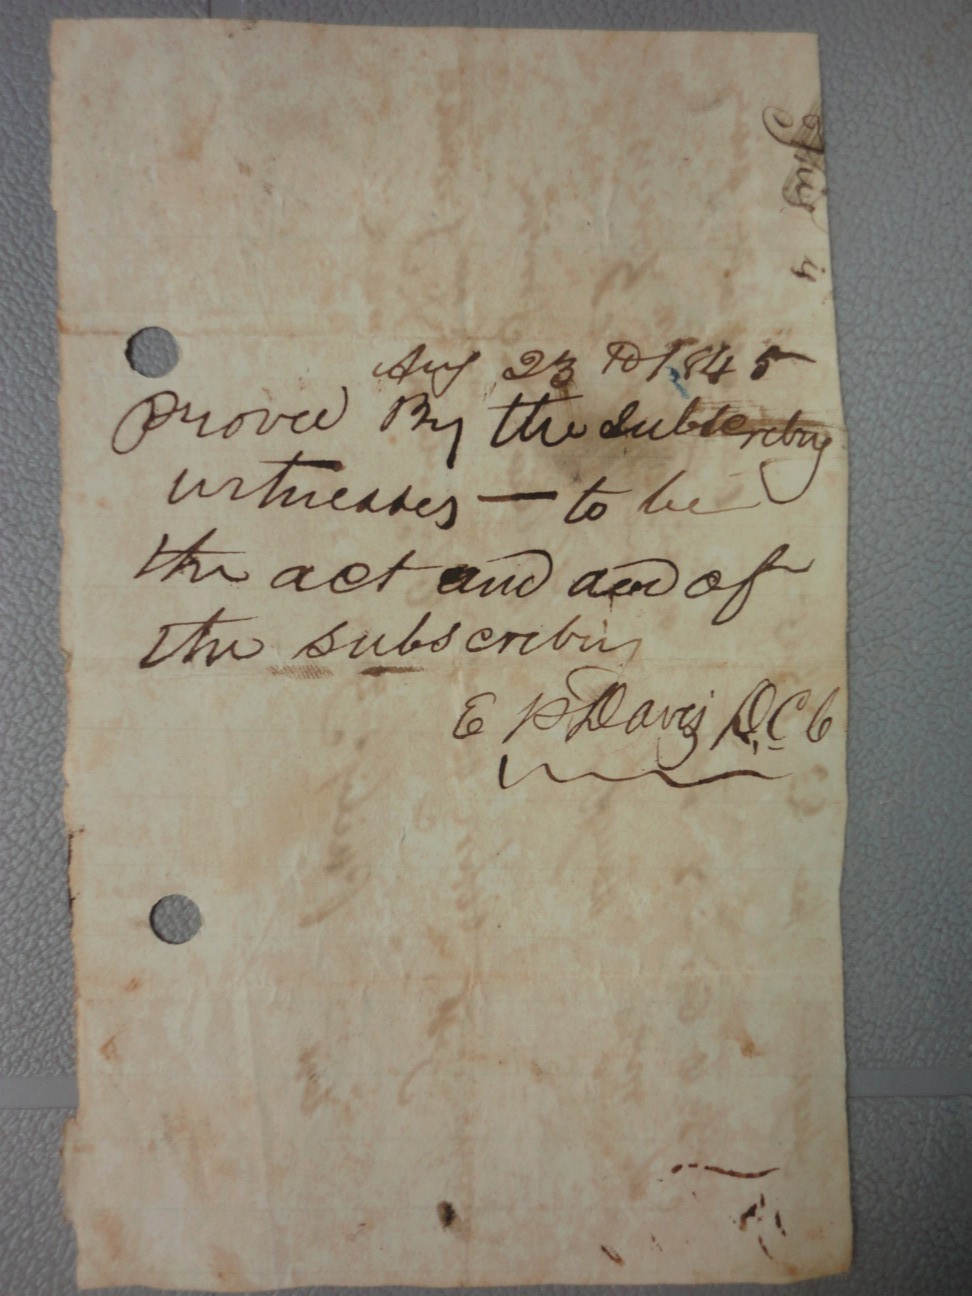 Aug 23 D 1845
Proved By the subscribing
witnesses — to be
the act and and of
the subscribing
E P Davis D.C.C